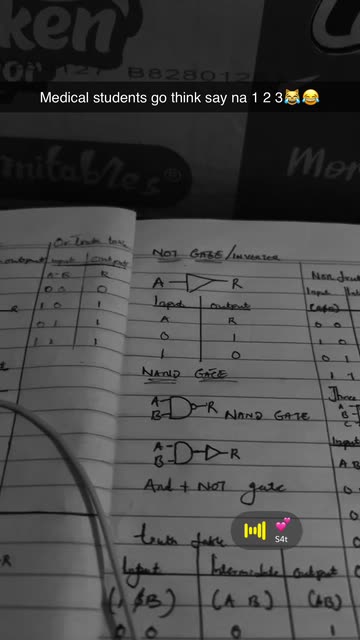 ken
127 B828012
Medical students go think say na 1 2 3😹😂
mitables®
Mor
Or Truth table
output
input output
A B R
0 0 0
1 0 1
0 1 1
1 1 1
NOT GATE/INVERTER
A R
Input output
A R
0 1
1 0
NAND GATE
A
B R NAND GATE
A
B R
And + NOT gate
truth table
Input Intermediate output
(A B) (AB)
0 0 0 1
Input
0 0
1 0
0 1
1 1
A
B
C
Input
A B
0 0
S4t